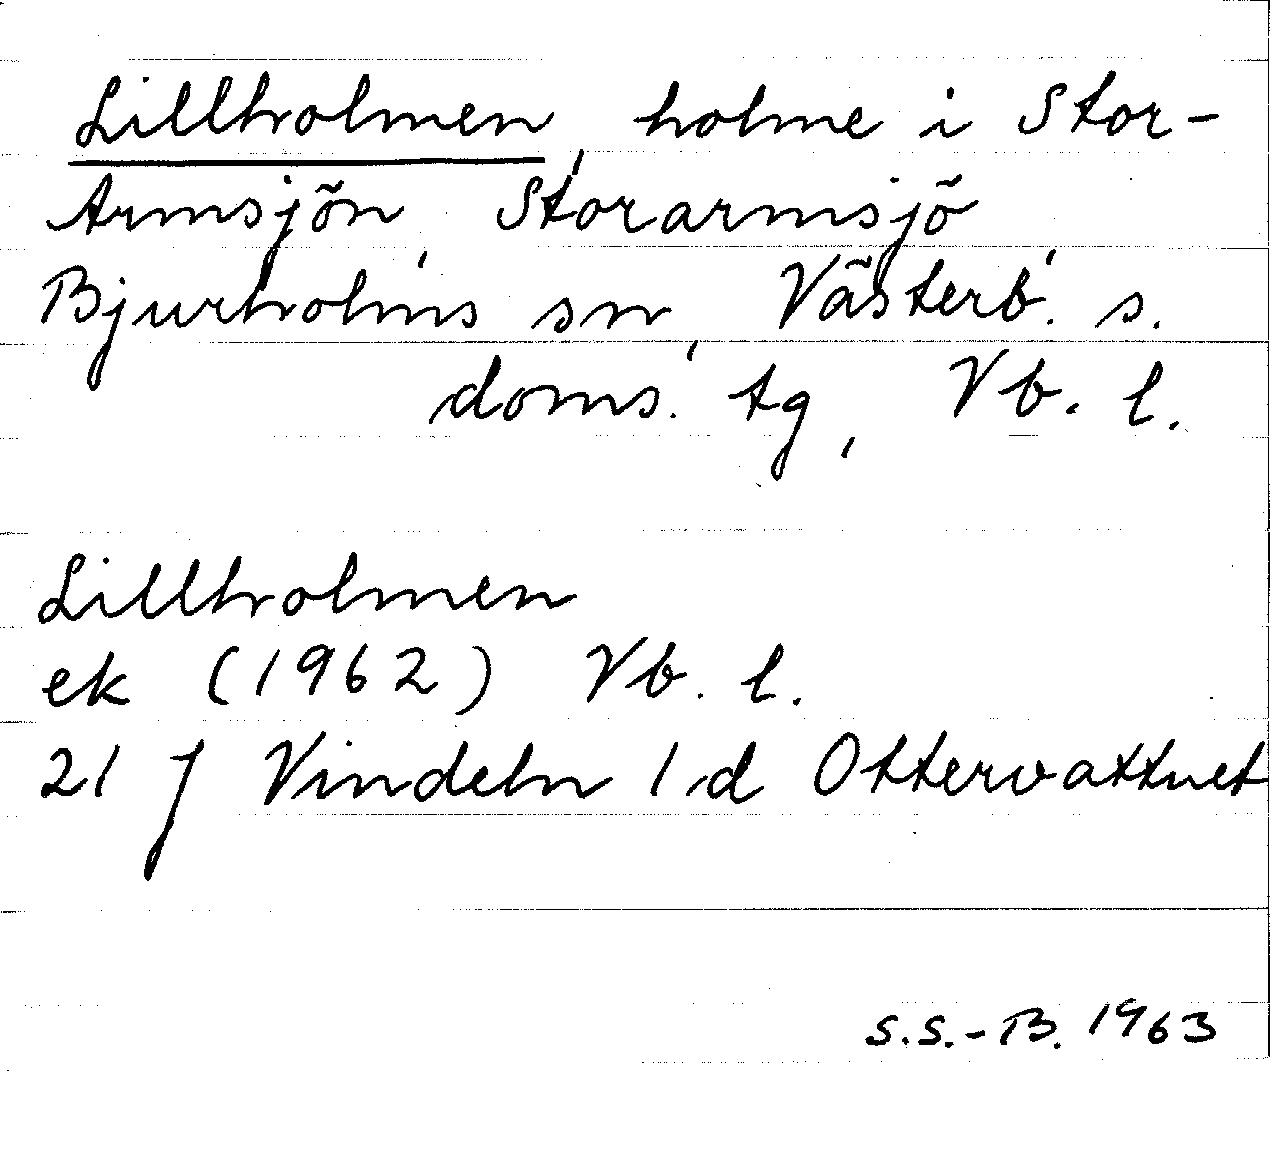 Lillholmen, holme i Stor-
Armsjön, Storarmsjö,
Bjurholms sn, Västerb. s.
doms. tg, Vb. l.
Lillholmen
ek (1962) Vb. l.
21 J Vindeln 1 d Ottervattnet
S.S.-B. 1963